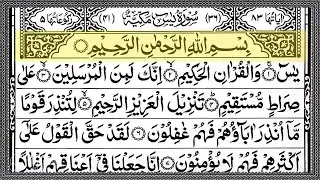 اٰیاتھا ۸۳ (۳۶) سُوْرَةُ يٰسٓ مَكِّيَّةٌ (۴۱) رکوعاتھا ۵
بِسْمِ اللهِ الرَّحْمٰنِ الرَّحِيْمِ
يٰسٓ ۚ وَالْقُرْاٰنِ الْحَكِيْمِ ۙ اِنَّكَ لَمِنَ الْمُرْسَلِيْنَ ۙ عَلٰى
صِرَاطٍ مُّسْتَقِيْمٍ ؕ تَنْزِيْلَ الْعَزِيْزِ الرَّحِيْمِ ۙ لِتُنْذِرَ قَوْمًا
مَّاۤ اُنْذِرَ اٰبَآؤُهُمْ فَهُمْ غٰفِلُوْنَ لَقَدْ حَقَّ الْقَوْلُ عَلٰۤى
اَكْثَرِهِمْ فَهُمْ لَا يُؤْمِنُوْنَ اِنَّا جَعَلْنَا فِيْۤ اَعْنَاقِهِمْ اَغْلٰلًا